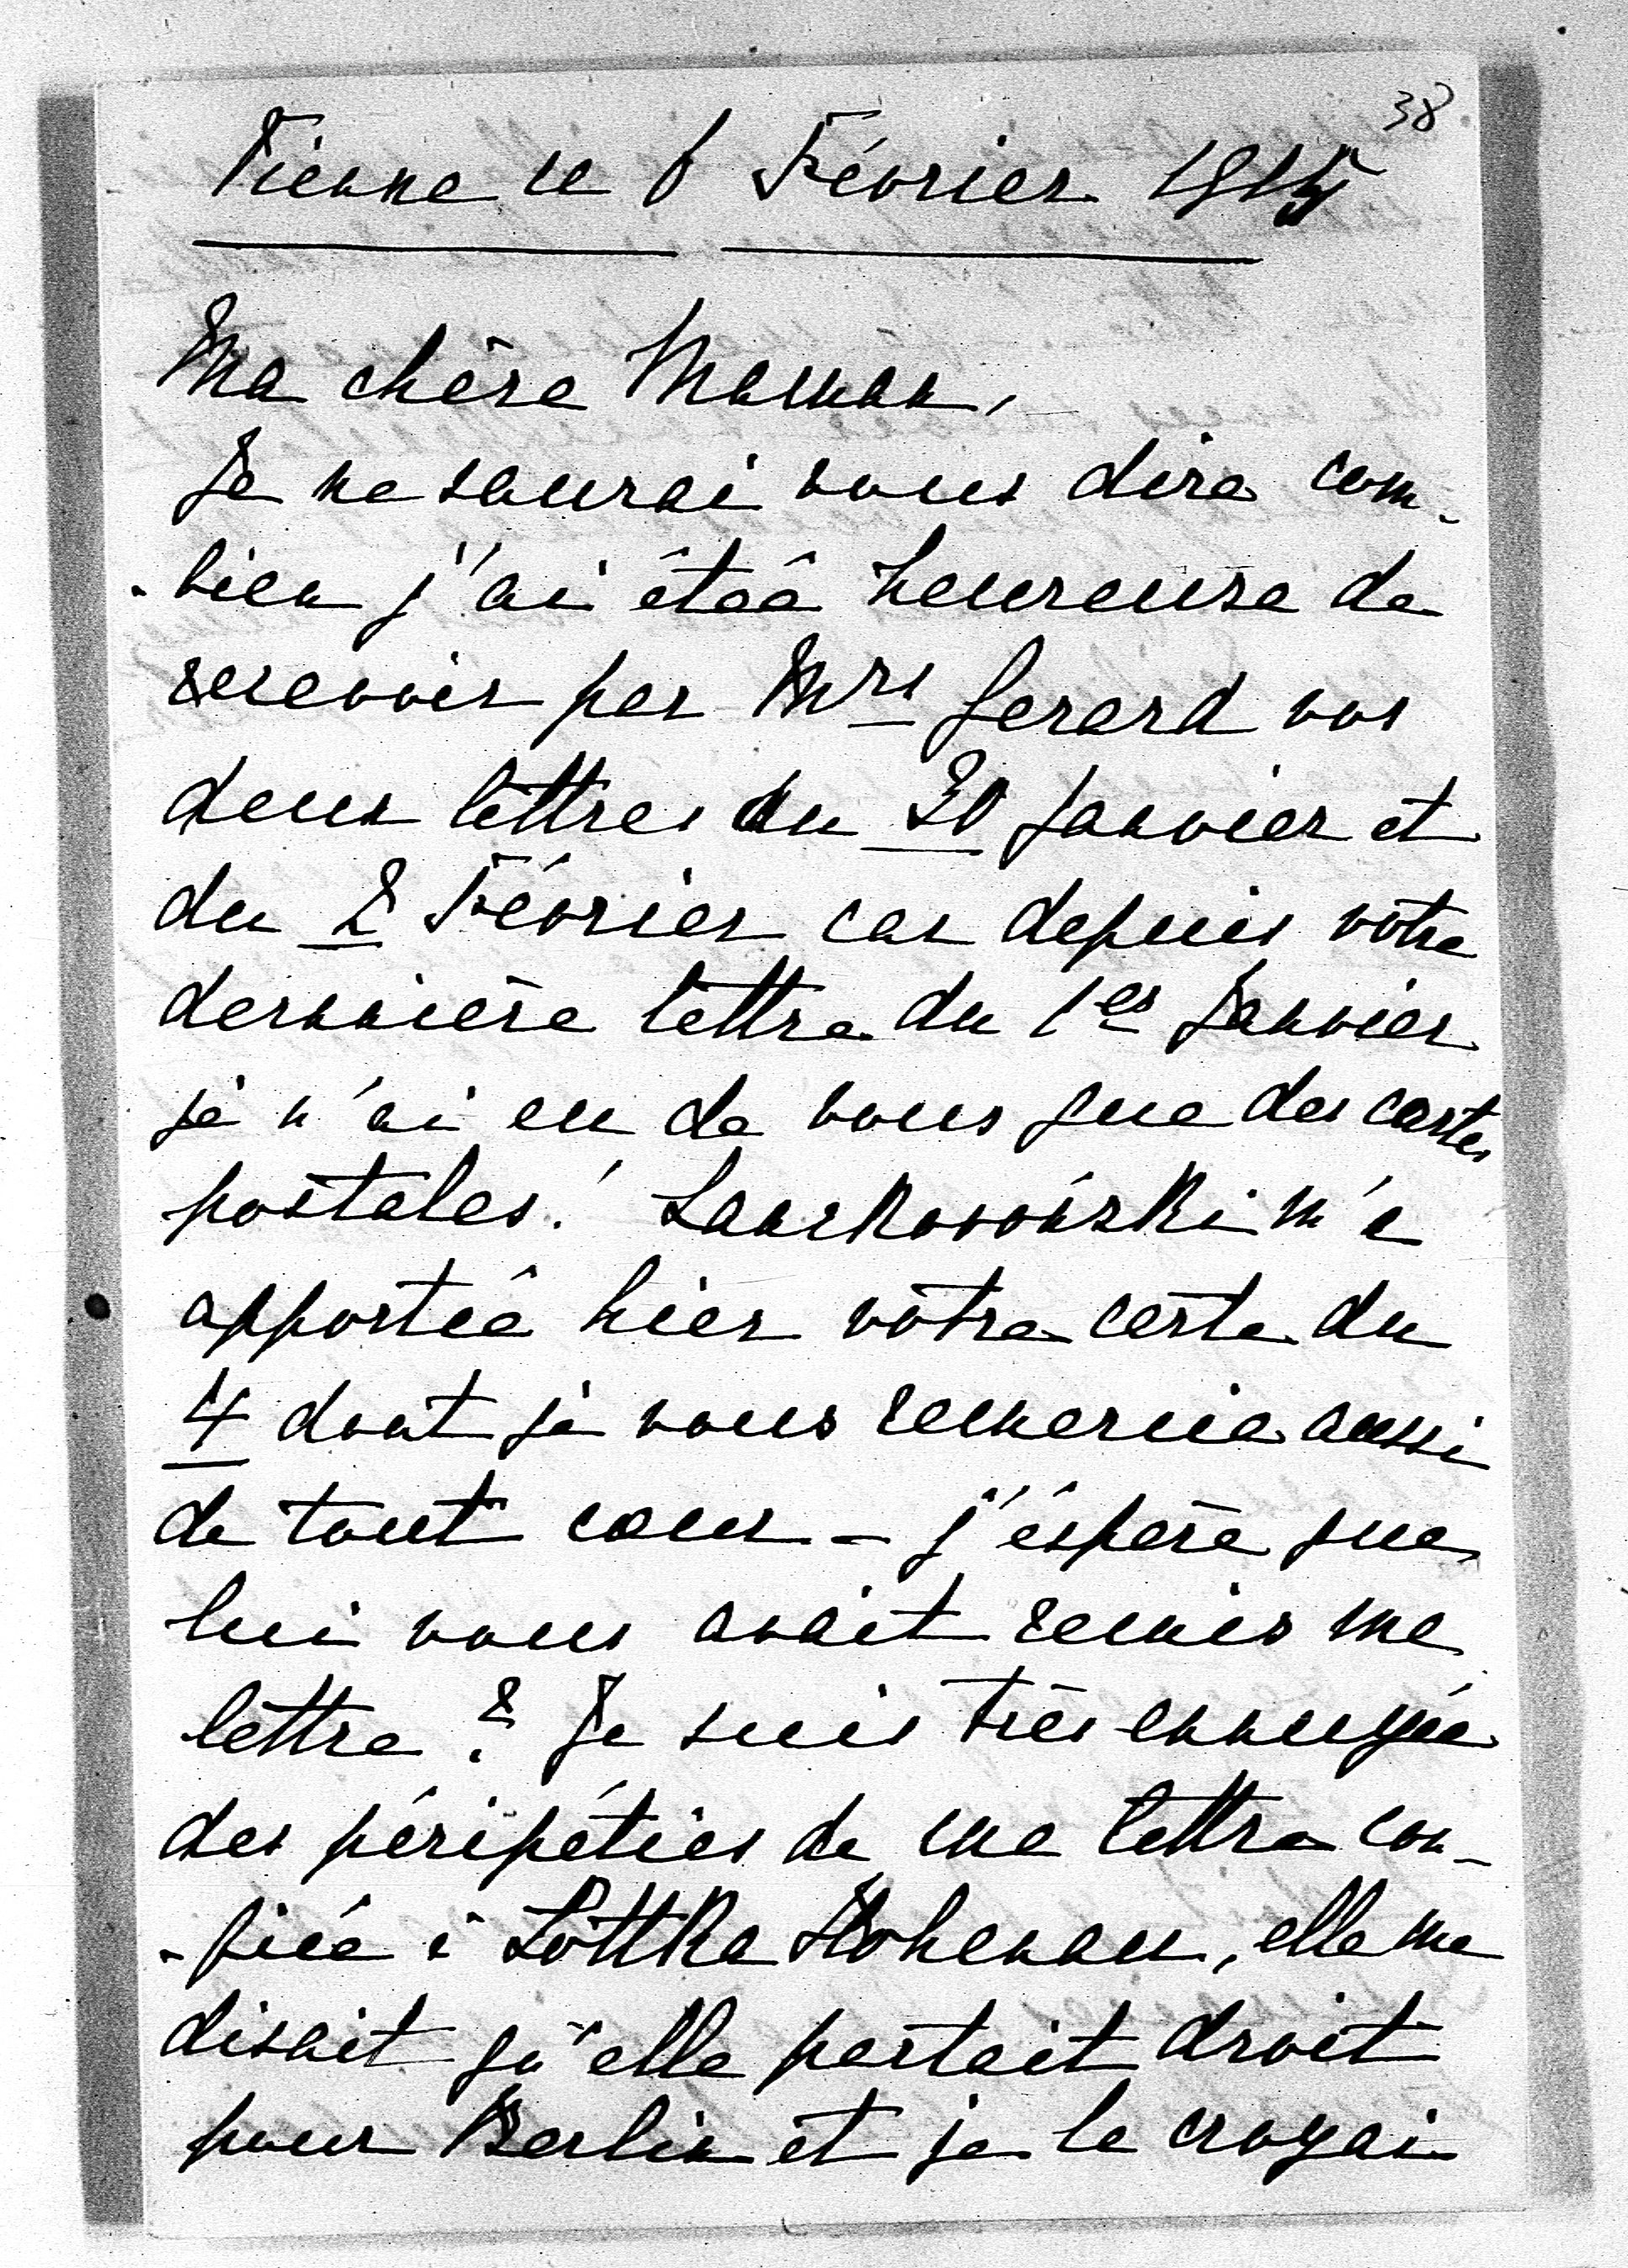 38
Vienne le 6 Février 1915
Ma chère Maman,
Je ne saurai vous dire com-
-bien j'ai étée heureuse de
recevoir par Mrs Gerard vos
deux lettres du 30 Janvier et
du 2 Février car depuis votre
dernnière lettre du 1er Janvier
je n'ai eu de vous que des cartes
postales! Lanckorónski m'a
apportée hier votre carte du
4 dont je vous remercie aussi
de tout cœur - j'éspère que
lui vous avait remis ma
lettre? Je suis très ennuyée
des péripéties de ma lettre con-
-fiée à Lottka Hohenau, elle me
disait qu'elle partait droit
pour Berlin et je le croyai